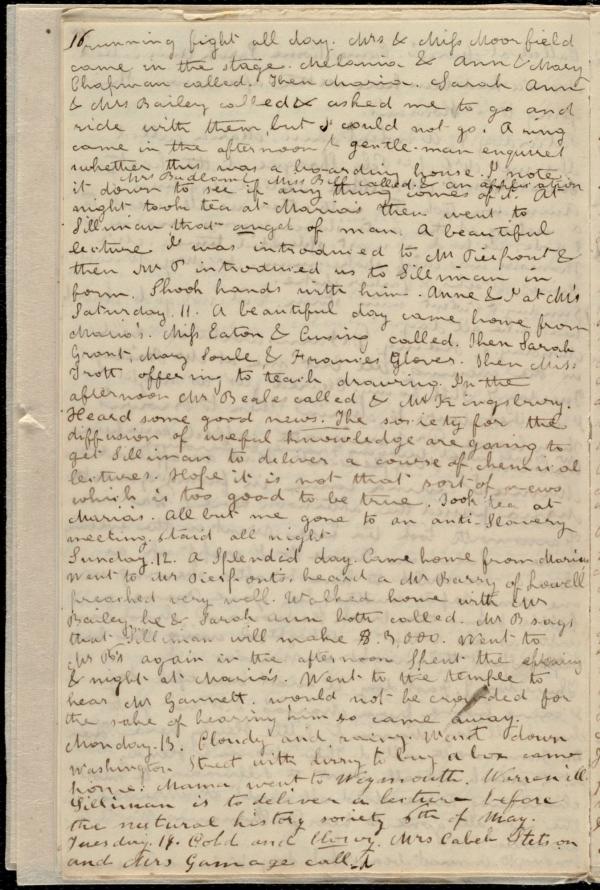 16
running fight all day. Mrs & Miss Moorfield
came in the stage. Melania & Ann & Mary
Chapman called. Then Maria. Sarah Ann
& Mrs Bailey called & asked me to go and
ride with them but I could not go. A ring
came in the afternoon & gentle-man enquired
whether this was a boarding house. I note
Mrs Budlong & Miss Bill called. & an application
it down to see if any thing comes of it. At
night took tea at Maria's then went to
Silliman that angel of man. A beautiful
lecture I was introduced to Mr Pierpont &
then Mr P introduced us to Silliman in
form. Shook hands with him. Anne & I at M's
Saturday. 11. A beautiful day came home from
Maria's. Miss Eaton & Cusing called. Then Sarah
Grant, Mary Soule & Frances Glover. Then Miss
Trott offering to teach drawing. In the
afternoon Mr Beale called & Mr Kingsbury.
Heard some good news. The society for the
diffusion of useful knowledge are going to
get Silliman to deliver a course of chemical
lectures. Hope it is not that sort of news
which is too good to be true. Took tea at
Maria's. All but me gone to an anti-Slavery
meeting. staid all night
Sunday. 12. A Splendid day. Came home from Marias
Went to Mr Pierponts. heard a Mr Barry of Lowell
preached very well. Walked home with Mr
Bailey, he & Sarah ann both called. Mr B says
that Silliman will make $ 3,000. Went to
Mr P's again in the afternoon Spent the evening
& night at Maria's. Went to the temple to
hear Mr Gannett. would not be crowded for
the sake of hearing him so came away.
Monday. 13. Cloudy and rainy. Went down
Washington Street with to buy a box came
home. Mama went to Weymouth. Warren ill
Silliman is to deliver a lecture before
the natural history society 6th of May.
Tuesday. 14. Cold and Mrs Caleb Stetson
and Mrs Gamage called